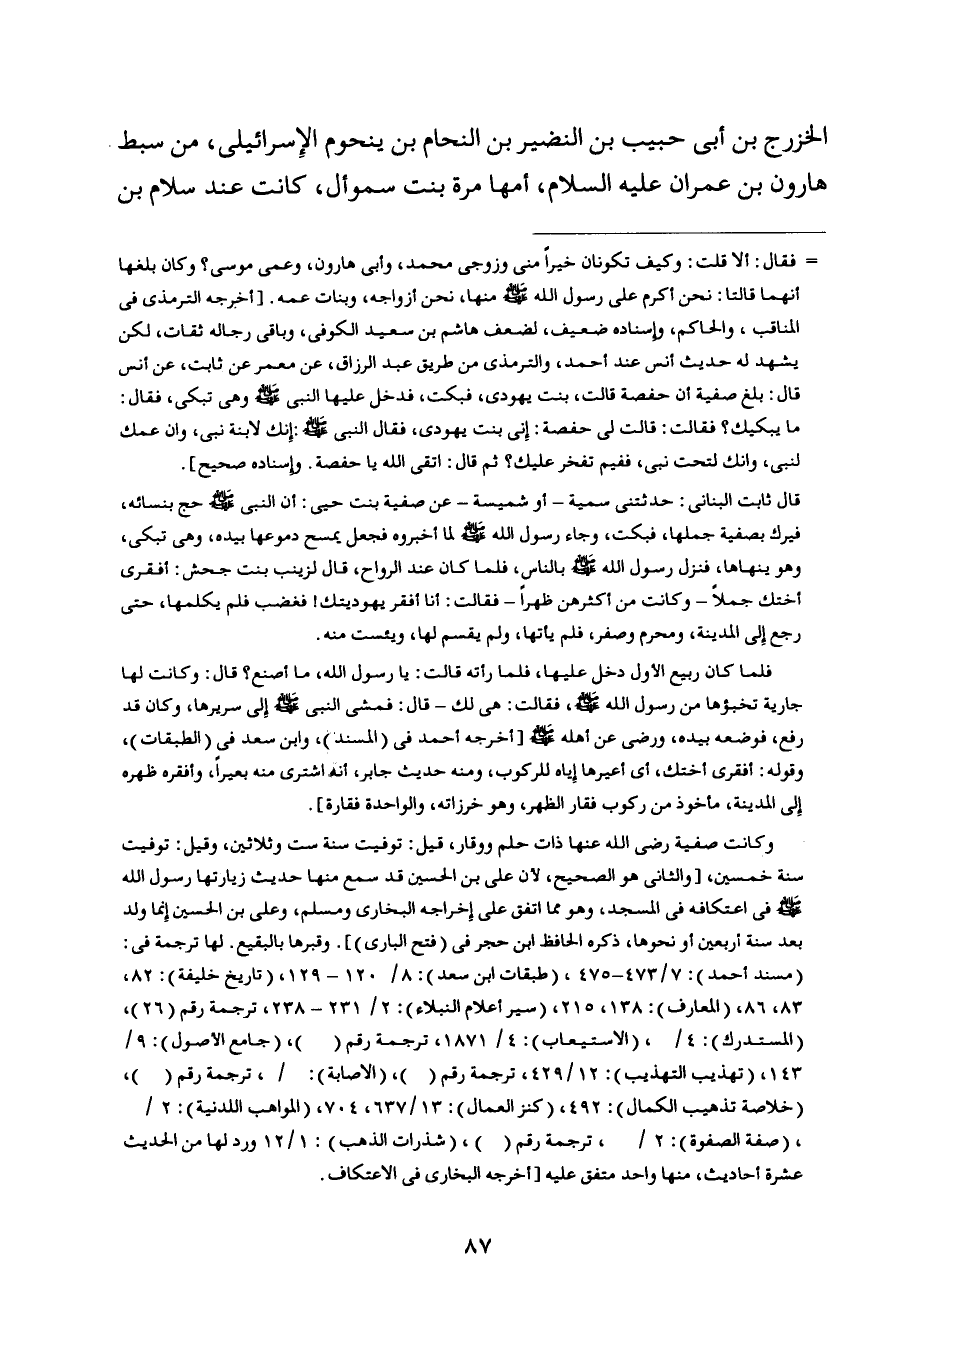 الخزرج بن أبى حبيب بن النضير بن النحام بن ينحوم الإسرائيلى، من سبط
هارون بن عمران عليه السلام، أمها مرة بنت سموأل، كانت عند سلام بن
= فقال: ألا قلت: وكيف تكونان خيراً منى وزوجى محمد، وأبى هارون، وعمى موسى؟ وكان بلغها
أنهما قالتا: نحن أكرم على رسول الله ﷺ منها، نحن أزواجه، وبنات عمه. [أخرجه الترمذى فى
المناقب ، والحاكم، وإسناده ضعيف، لضعف هاشم بن سعيد الكوفى، وباقى رجاله ثقات، لكن
يشهد له حديث أنس عند أحمد، والترمذى من طريق عبد الرزاق، عن معمر عن ثابت، عن أنس
قال: بلغ صفية أن حفصة قالت، بنت يهودى، فبكت، فدخل عليها النبى ﷺ وهى تبكى، فقال:
ما يبكيك؟ فقالت: قالت لى حفصة: إنى بنت يهودى، فقال النبى ﷺ :إنك لابنة نبى، وان عمك
لنبى، وانك لتحت نبى، ففيم تفخر عليك؟ ثم قال: اتقى الله يا حفصة. وإسناده صحيح].
قال ثابت البنانى: حدثتنى سمية – أو شميسة – عن صفية بنت حيى: أن النبى ﷺ حج بنسائه،
فبرك بصفية جملها، فبكت، وجاء رسول الله ﷺ لما أخبروه فجعل يمسح دموعها بيده، وهى تبكى،
وهو ينهاها، فنزل رسول الله ﷺ بالناس، فلما كان عند الرواح، قال لزينب بنت جحش: أفقرى
أختك جملاً – وكانت من أكثرهن ظهراً – فقالت: أنا أفقر يهوديتك! فغضب فلم يكلمها، حتى
رجع إلى المدينة، ومحرم وصفر، فلم يأتها، ولم يقسم لها، ويئست منه.
فلما كان ربيع الأول دخل عليها، فلما رأته قالت: يا رسول الله، ما أصنع؟ قال: وكانت لها
جارية تخبؤها من رسول الله ﷺ، فقالت: هى لك – قال: فمشى النبى ﷺ إلى سريرها، وكان قد
رفع، فوضعه بيده، ورضى عن أهله ﷺ [أخرجه أحمد فى (المسند)، وابن سعد فى (الطبقات)،
وقوله: أفقرى أختك، أى أعيرها إياه للركوب، ومنه حديث جابر، أنه اشترى منه بعيراً، وأفقره ظهره
إلى المدينة، مأخوذ من ركوب فقار الظهر، وهو خرزاته، والواحدة فقارة].
وكانت صفية رضى الله عنها ذات حلم ووقار، قيل: توفيت سنة ست وثلاثين، وقيل: توفيت
سنة خمسين، [والثانى هو الصحيح، لأن على بن الحسين قد سمع منها حديث زيارتها رسول الله
ﷺ فى اعتكافه فى المسجد، وهو مما اتفق على إخراجه البخارى ومسلم، وعلى بن الحسين إنما ولد
بعد سنة أربعين أو نحوها، ذكره الحافظ ابن حجر فى (فتح البارى)]. وقبرها بالبقيع. لها ترجمة فى:
(مسند أحمد): ٤٧٣/٧–٤٧٥ ، (طبقات ابن سعد): ٨/ ١٢٠ – ١٢٩، (تاريخ خليفة): ٨٢،
٨٣، ٨٦، (المعارف): ١٣٨، ٢١٥، (سير أعلام النبلاء): ٢/ ٢٣١ – ٢٣٨، ترجمة رقم (٢٦)،
(المستدرك): ٤/ ، (الاستيعاب): ٤/ ١٨٧١، ترجمة رقم ( )، (جامع الأصول): ٩/
١٤٣، (تهذيب التهذيب): ٤٢٩/١٢، ترجمة رقم ( )، (الاصابة): / ، ترجمة رقم ( )،
(خلاصة تذهيب الكمال): ٤٩٢، (كنز العمال): ٦٣٧/١٣، ٧٠٤، (المواهب اللدنية): ٢ /
، (صفة الصفوة): ٢ / ، ترجمة رقم ( ) ، (شذرات الذهب) : ١٢/١ ورد لها من الحديث
عشرة أحاديث، منها واحد متفق عليه [أخرجه البخارى فى الاعتكاف.
٨٧